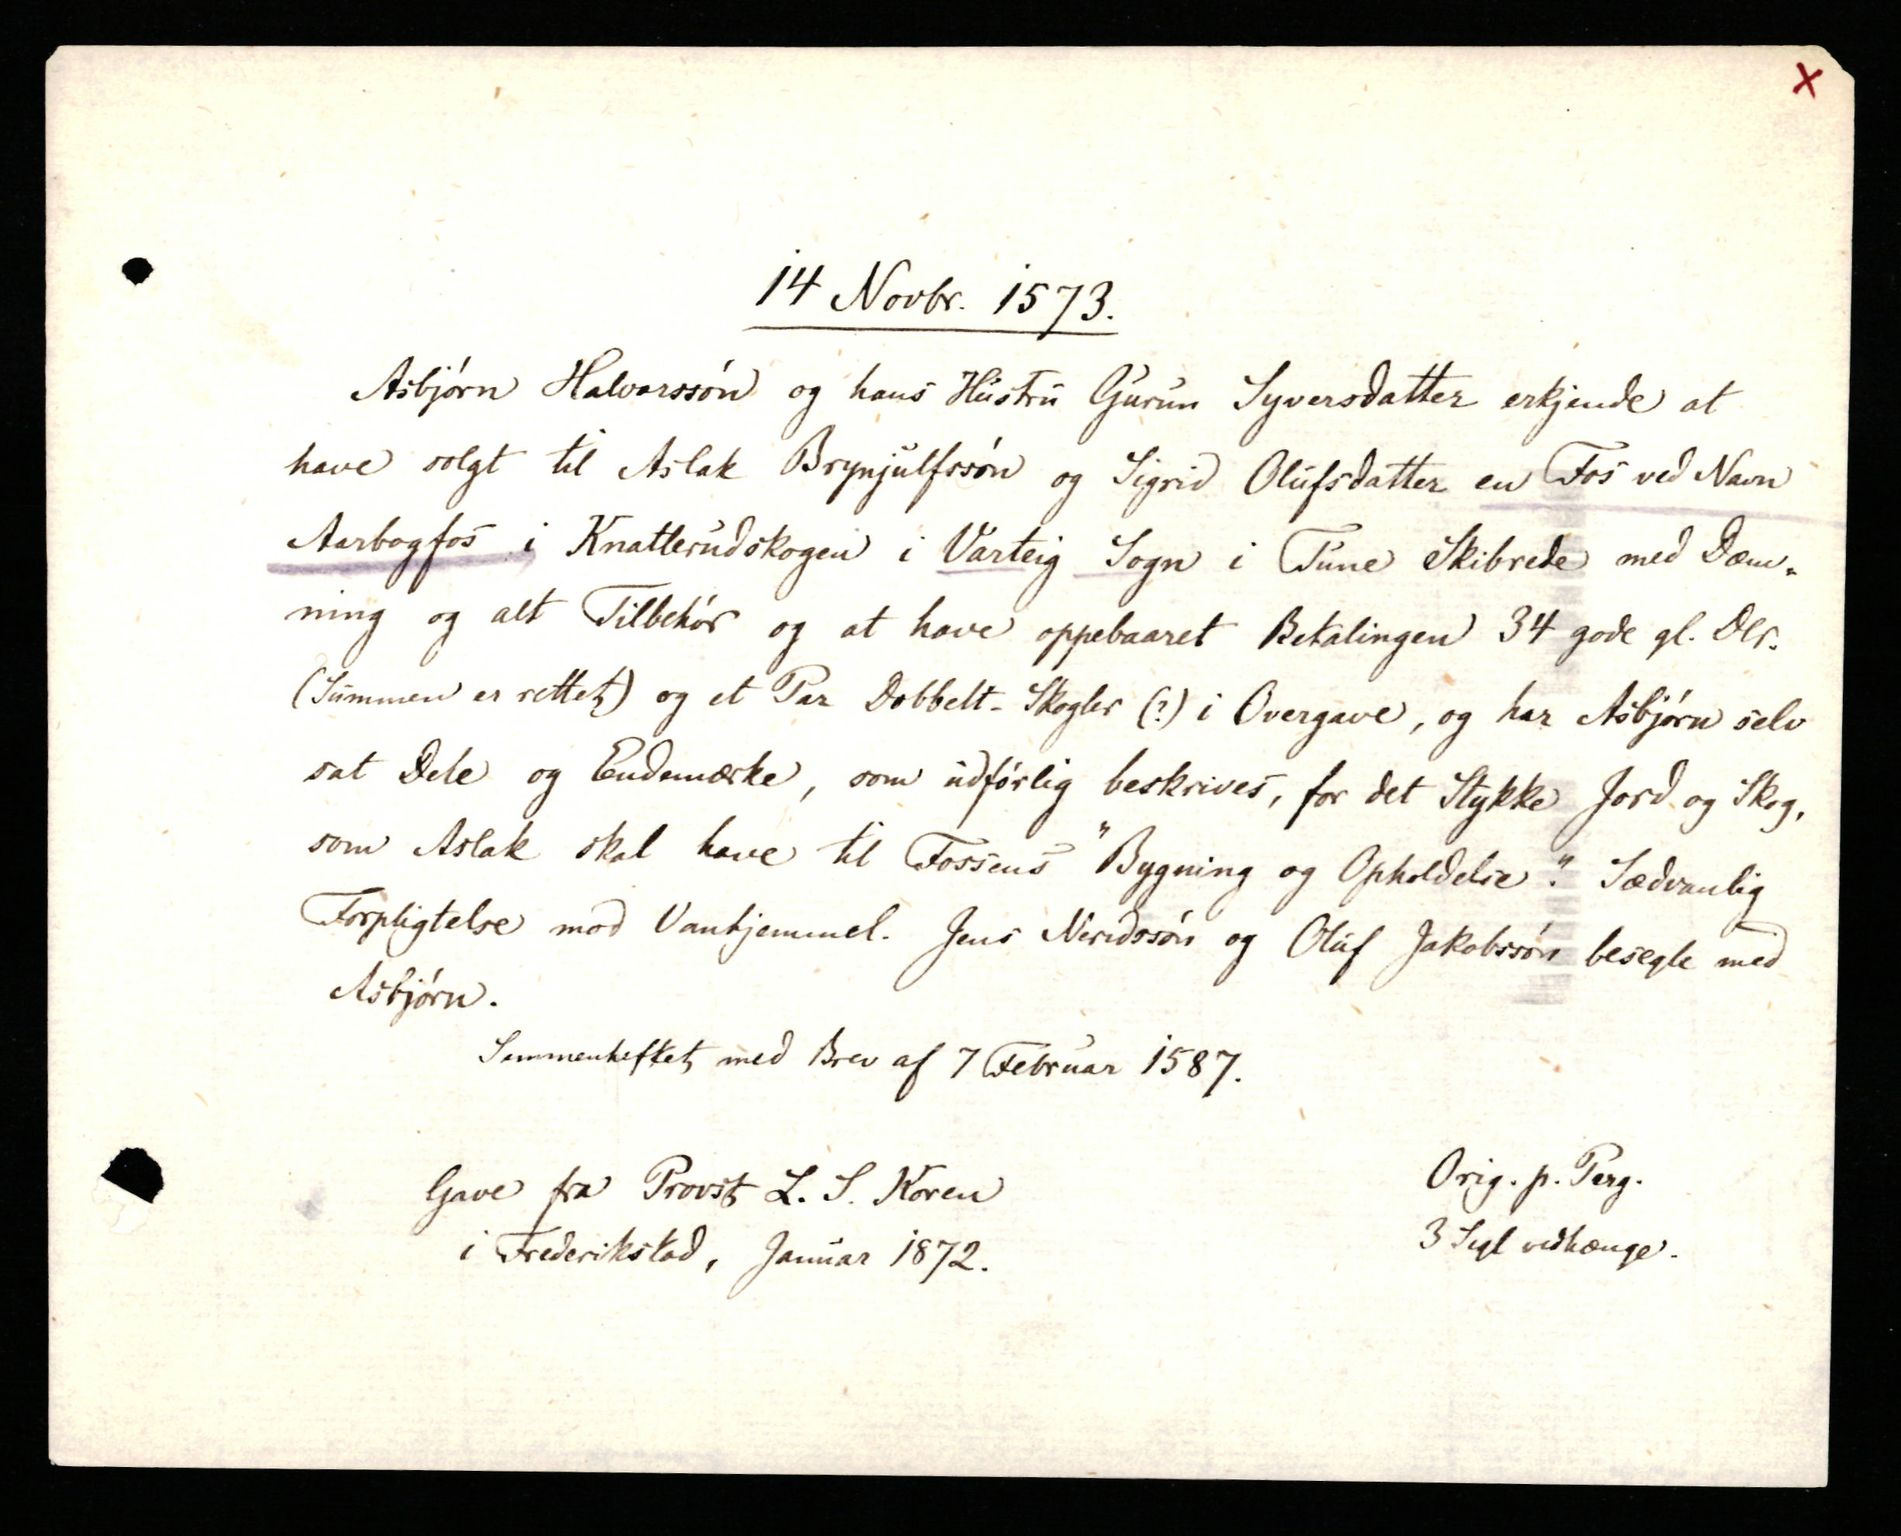 x
14 Novbr. 1573.
Asbjørn Halvorssøn og hans Hustru Gurun Syversdatter erkjende at
have solgt til Aslak Brynjulfssøn og Sigrid Olufsdatter en Fos ved Navn
Aarbogfos i Knatterudskogen i Varteig Sogn i Tune Skibrede med Dæm-
ning og alt Tilbehør og at have oppebaaret Betalingen 34 gode gl. Dlr.
(Summen er rettet) og et Par Dobbelt-Skogler (?) i Overgave, og har Asbjørn selv
sat Dele og Endemærke, som udførlig beskrives, for det Stykke Jord og Skog,
som Aslak skal have til Fossens "Bygning og Opholdelse". Sædvanlig
Forpligtelse mod Vanhjemmel. Jens Neridssøn og Oluf Jakobssøn besegle med
Asbjørn.
Sammenheftet med Brev af 7 Februar 1587.
Gave fra Provst L. S. Koren
i Frederikstad, Januar 1872.
Orig. p. Perg.
3 Segl vedhænge.